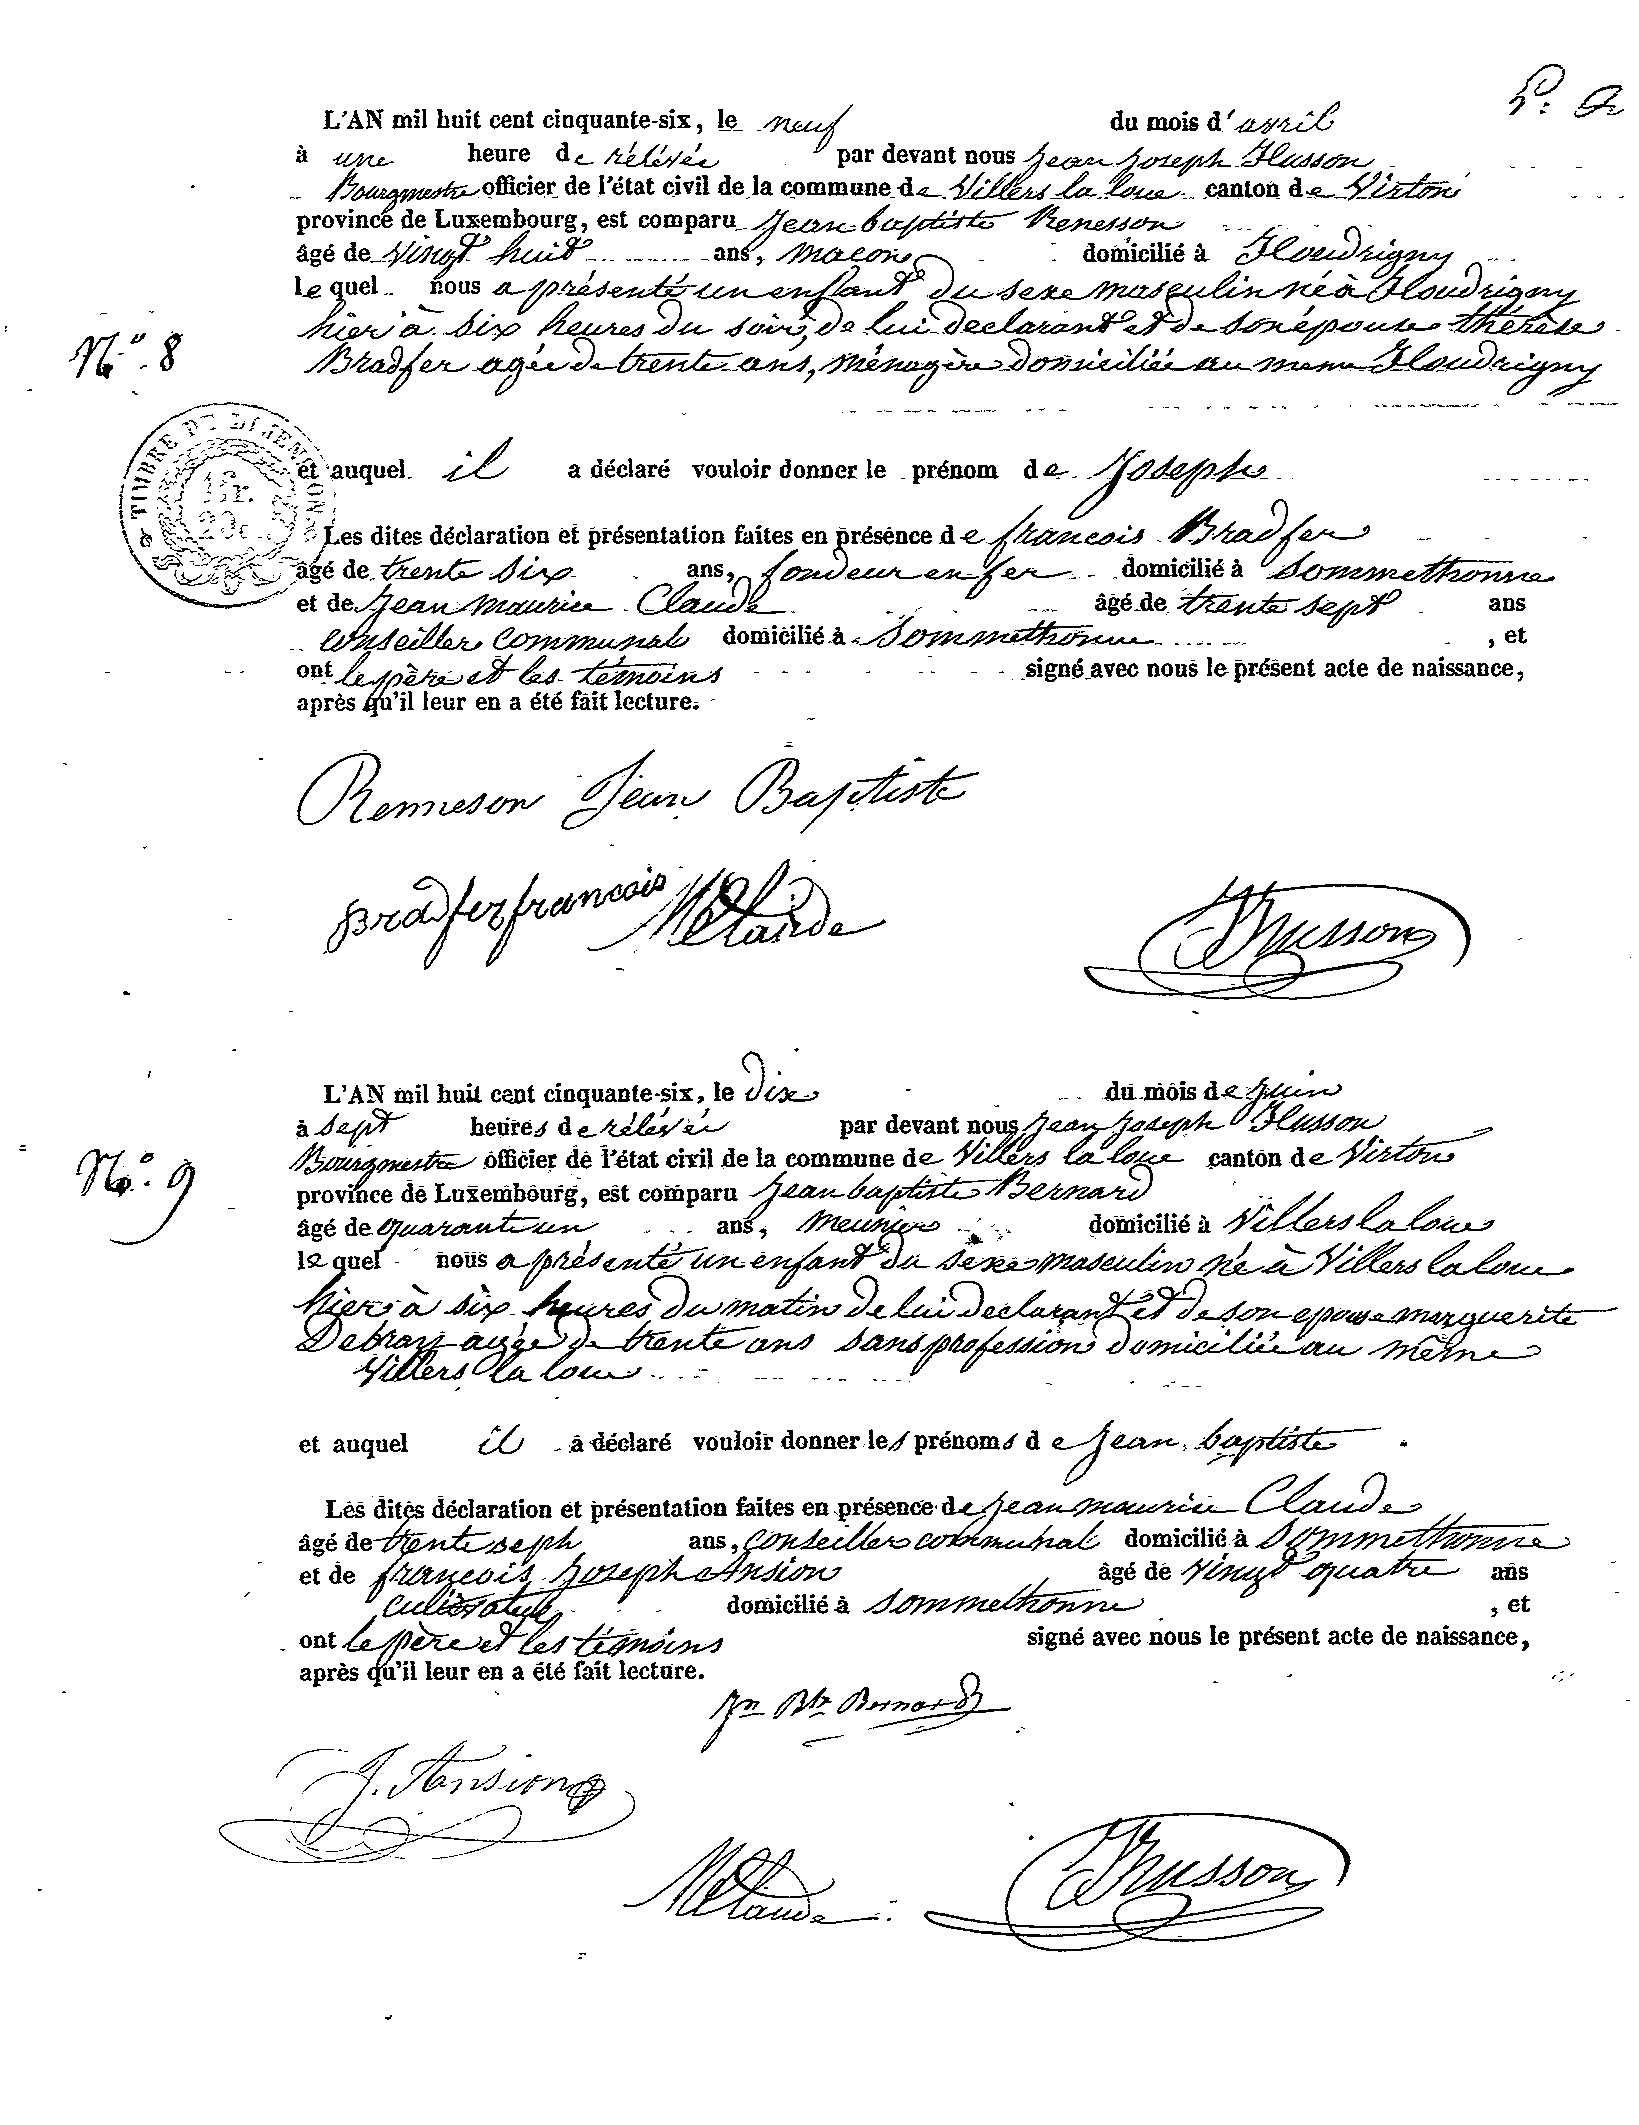 L'AN mil huit cent cinquante-six, le neuf du mois d'avril
à une heure de rélévée par devant nous Jean Joseph Husson
Bourgmestre officier de l'état civil de la commune de Villers la loue canton de Virton
province de Luxembourg, est comparu Jean baptiste Renesson
âgé de vingt huit ans, maçon domicilié à Houdrigny
le quel nous a présenté un enfant du sexe masculin né à Houdrigny
hier à six heures du soir, de lui declarant et de son épouse thérèse
N.° 8
Bradfer agée de trente ans, ménagère domiciliée au meme Houdrigny
TIMBRE DE DIMENSION
1 fr.
20 c.
et auquel il a déclaré vouloir donner le prénom de Joseph
Les dites déclaration et présentation faites en présence de francois Bradfer
âgé de trente six ans, fondeur en fer domicilié à Sommethonne
et de Jean maurice Claude âgé de trente sept ans
conseiller communal domicilié à Sommethonne , et
ont le père et les témoins signé avec nous le présent acte de naissance,
après qu'il leur en a été fait lecture.
Renneson Jean Baptiste
Bradfer francois MClaude Husson
L'AN mil huit cent cinquante-six, le dix du mois de juin
à sept heures de rélévée par devant nous Jean Joseph Husson
Bourgmestre officier de l'état civil de la commune de Villers la loue canton de Virton
N.° 9
province de Luxembourg, est comparu Jean baptiste Bernard
âgé de quarante un ans, meunier domicilié à Villers la loue
le quel nous a présenté un enfant du sexe masculin né à Villers la loue
hier à six heures du matin de lui declarant et de son epouse marguerite
Debray agée de trente ans sans profession domiciliée au même
Villers la loue
et auquel il a déclaré vouloir donner les prénoms de Jean baptiste
Les dites déclaration et présentation faites en présence de Jean maurice Claude
âgé de trente seph ans, conseiller communal domicilié à Sommethonne
et de françois Joseph Ansion âgé de vingt quatre ans
domicilié à Sommethonne , et
ont le père et les témoins signé avec nous le présent acte de naissance,
après qu'il leur en a été fait lecture.
Jn Bte Bernard
J. Ansion
MClaude Husson